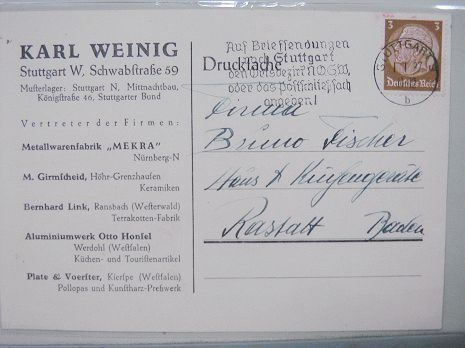 KARL WEINIG
Stuttgart W, Schwabstraße 59
Musterlager: Stuttgart N, Mittnachtbau,
Königstraße 46, Stuttgarter Bund
Vertreter der Firmen:
Metallwarenfabrik „MEKRA”
Nürnberg-N
M. Girmscheid, Höhr-Grenzhausen
Keramiken
Bernhard Link, Ransbach (Westerwald)
Terrakotten-Fabrik
Aluminiumwerk Otto Honsel
Werdohl (Westfalen)
Küchen- und Touristenartikel
Plate & Voerster, Kierspe (Westfalen)
Pollopas und Kunstharz-Preßwerk
Drucksache
Auf Briefsendungen
nach Stuttgart
den Postbezirk N,O,S,W,
oder das Postschließfach
angeben!
STUTTGART
b
3 3
Deutsches Reich
Firma
Bruno Fischer
Haus & Küchengeräte
Rastatt Baden